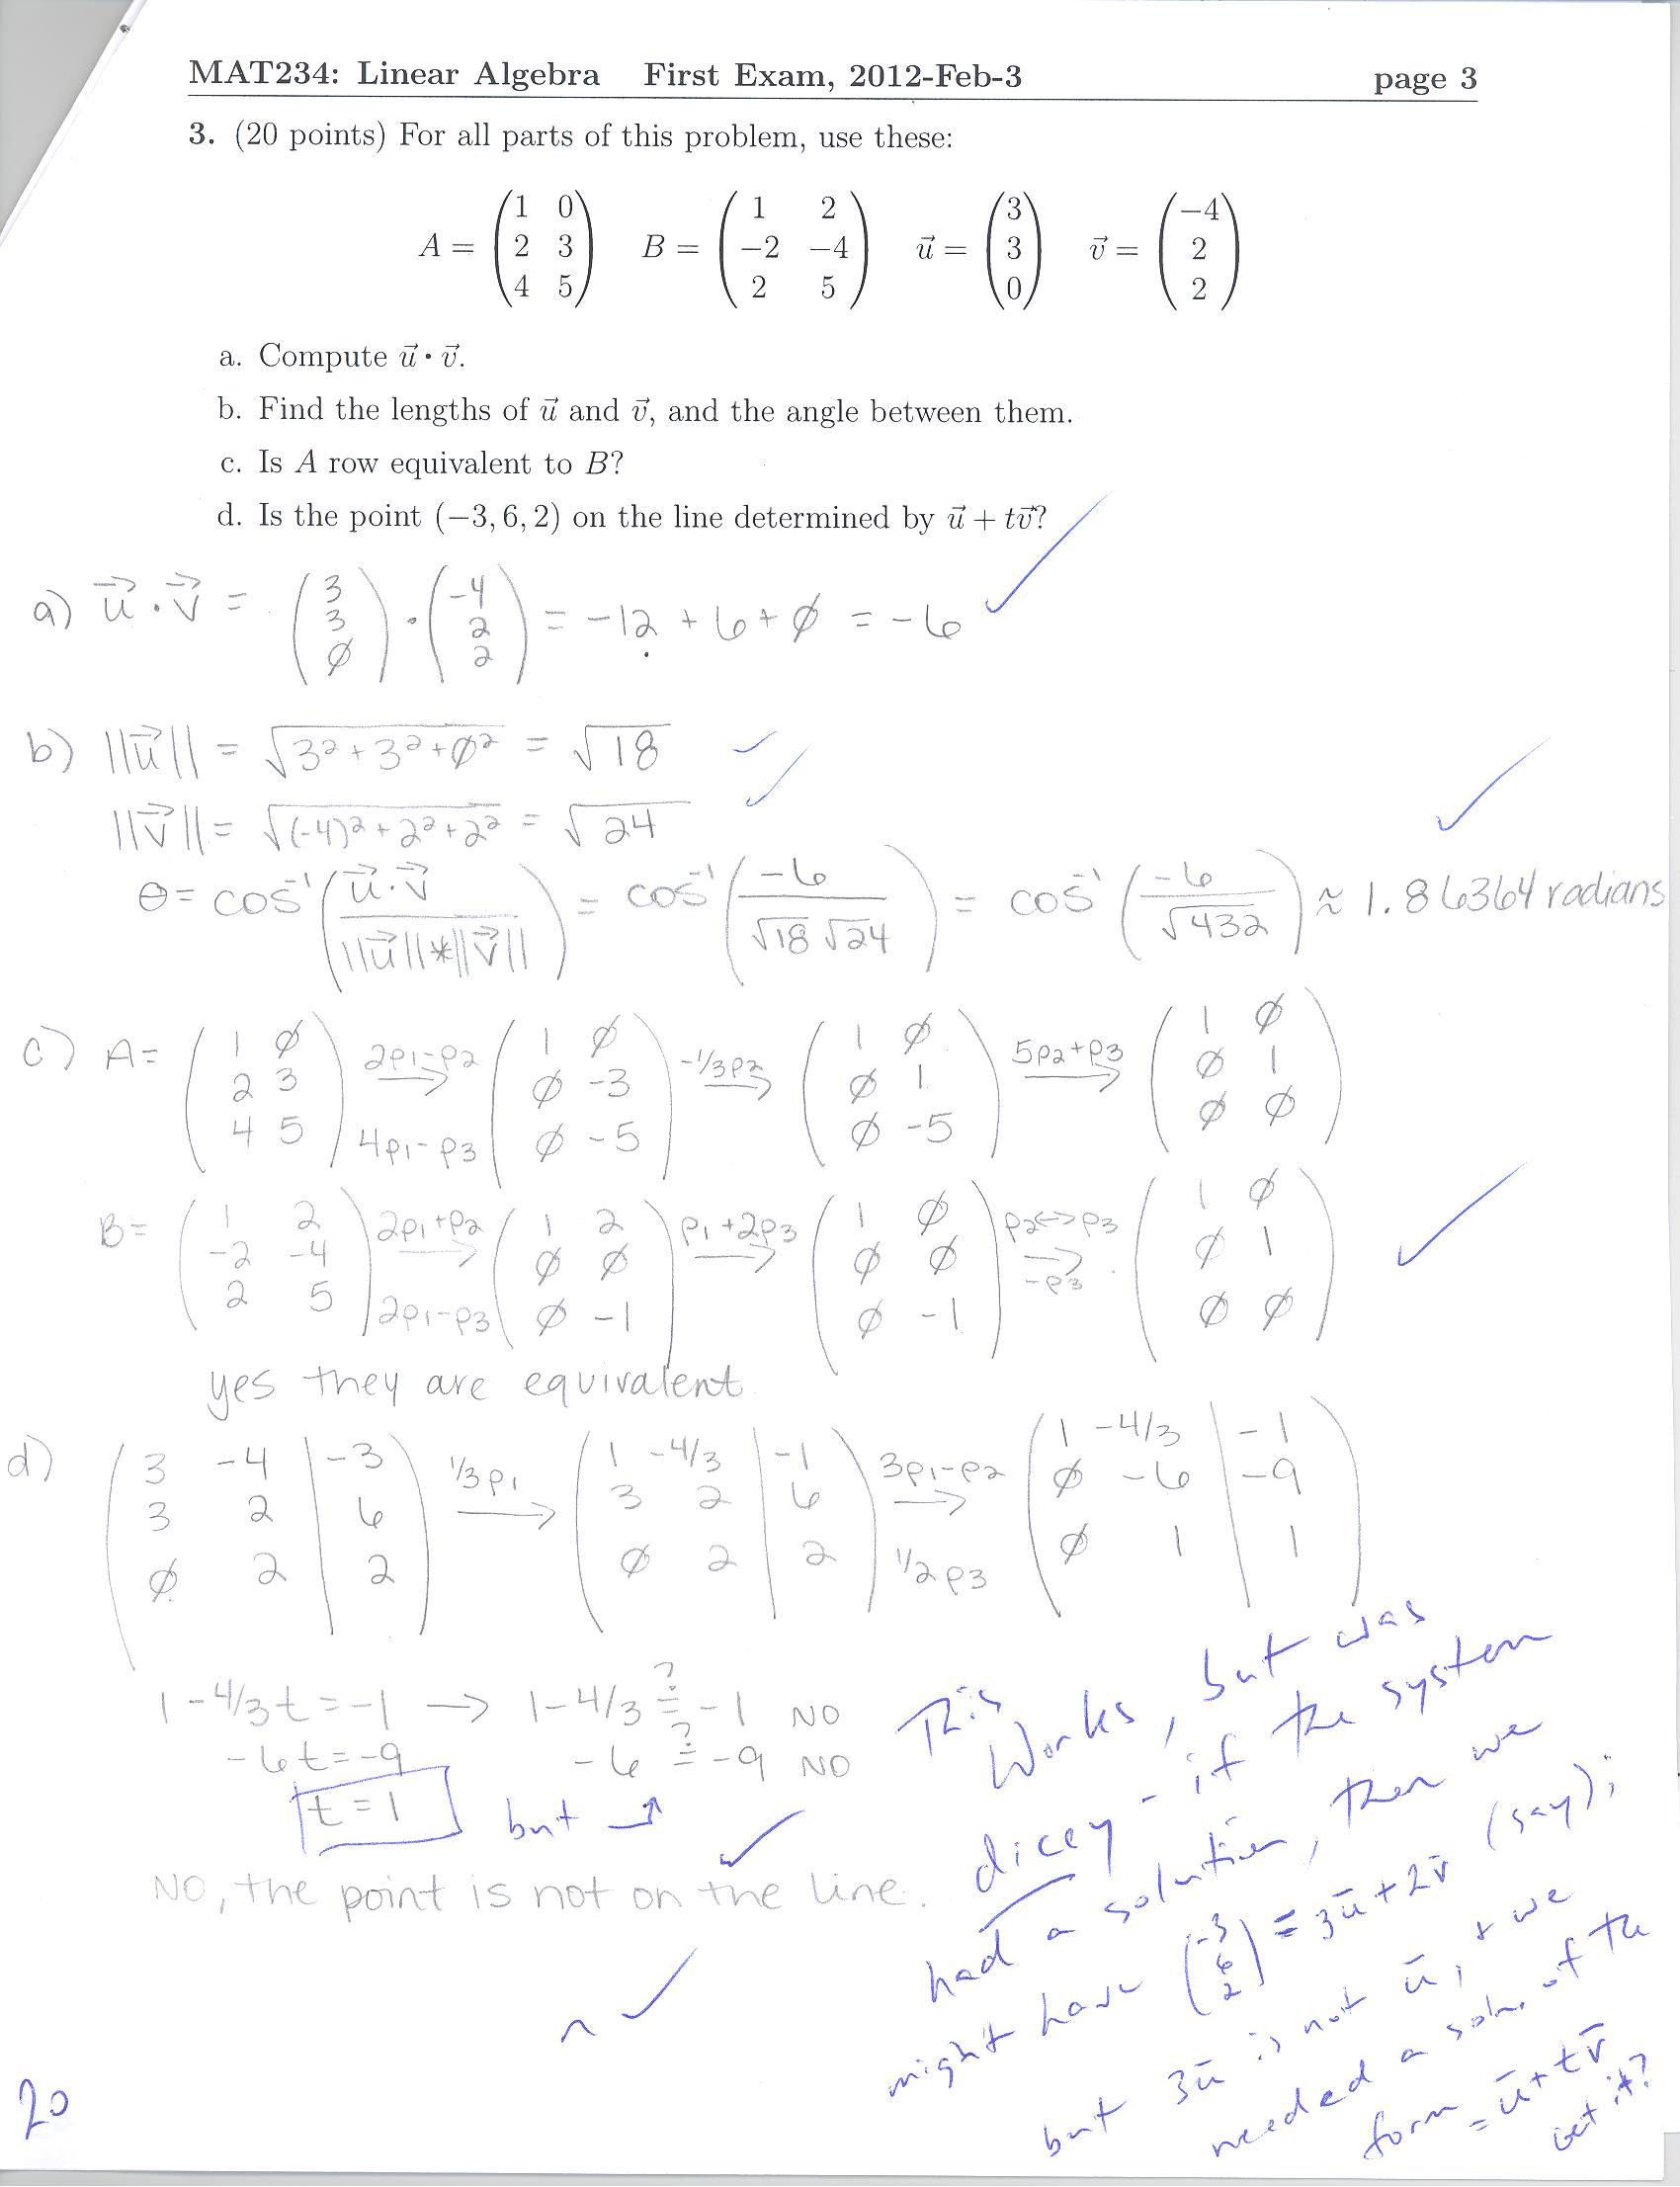 MAT234: Linear Algebra First Exam, 2012-Feb-3 page 3
3. (20 points) For all parts of this problem, use these:
A = (1 0; 2 3; 4 5) B = (1 2; −2 −4; 2 5) u⃗ = (3; 3; 0) v⃗ = (−4; 2; 2)
a. Compute u⃗ • v⃗.
b. Find the lengths of u⃗ and v⃗, and the angle between them.
c. Is A row equivalent to B?
d. Is the point (−3, 6, 2) on the line determined by u⃗ + tv⃗?
a) u⃗ · v⃗ = (3; 3; ∅) · (-4; 2; 2) = -12 + 6 + ∅ = -6 ✓
b) ||u⃗|| = √(3² + 3² + ∅²) = √18 ✓
||v⃗|| = √((-4)² + 2² + 2²) = √24 ✓ ✓
θ = cos⁻¹(u⃗·v⃗ / ||u⃗||*||v⃗||) = cos⁻¹(-6 / √18 √24) = cos⁻¹(-6 / √432) ≈ 1.86364 radians
c) A = (1 ∅; 2 3; 4 5) 2ρ1-ρ2 4ρ1-ρ3 → (1 ∅; ∅ -3; ∅ -5) -1/3ρ2 → (1 ∅; ∅ 1; ∅ -5) 5ρ2+ρ3 → (1 ∅; ∅ 1; ∅ ∅)
B = (1 2; -2 -4; 2 5) 2ρ1+ρ2 2ρ1-ρ3 → (1 2; ∅ ∅; ∅ -1) ρ1+2ρ3 → (1 ∅; ∅ ∅; ∅ -1) ρ2↔ρ3 -ρ3 → (1 ∅; ∅ 1; ∅ ∅) ✓
yes they are equivalent
d) (3 -4 | -3; 3 2 | 6; ∅ 2 | 2) 1/3ρ1 → (1 -4/3 | -1; 3 2 | 6; ∅ 2 | 2) 3ρ1-ρ2 1/2ρ3 → (1 -4/3 | -1; ∅ -6 | -9; ∅ 1 | 1)
1-4/3t = -1 → 1-4/3 ≟ -1 NO
-6t = -9 -6 ≟ -9 NO
t = 1 but ✓
NO, the point is not on the line.
✓
20
This
works, but was
dicey - if the system
had a solution, then we
might have (-3; 6; 2) = 3u̅ + 2v̅ (say);
but 3u̅ is not u̅, + we
needed a soln. of the
form = u̅ + tv̅
Get it?